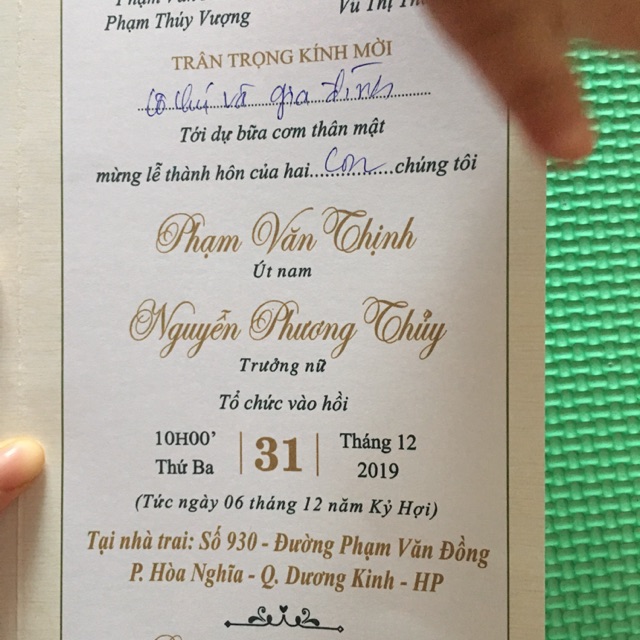 Phạm Thúy Vượng
Vũ Thị
TRÂN TRỌNG KÍNH MỜI
cô chú và gia đình
Tới dự bữa cơm thân mật
mừng lễ thành hôn của hai....Con....chúng tôi
Phạm Văn Thịnh
Út nam
Nguyễn Phương Thủy
Trưởng nữ
Tổ chức vào hồi
10H00' 31 Tháng 12
Thứ Ba 2019
(Tức ngày 06 tháng 12 năm Kỷ Hợi)
Tại nhà trai: Số 930 - Đường Phạm Văn Đồng
P. Hòa Nghĩa - Q. Dương Kinh - HP